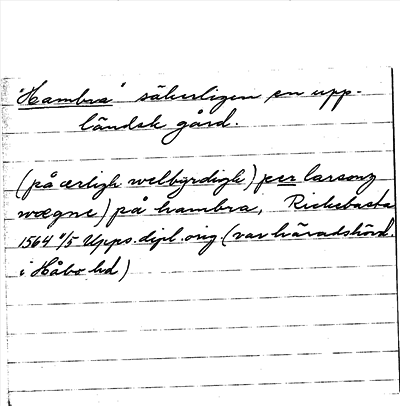 "Hambra" säkerligen en upp-
ländsk gård.
(på ærligh welbyrdigh) per larsons
wægne) på hambra, Rickebasta
1564 8/5 Upps. dipl. orig (var häradshövd.
i Håbo hd)